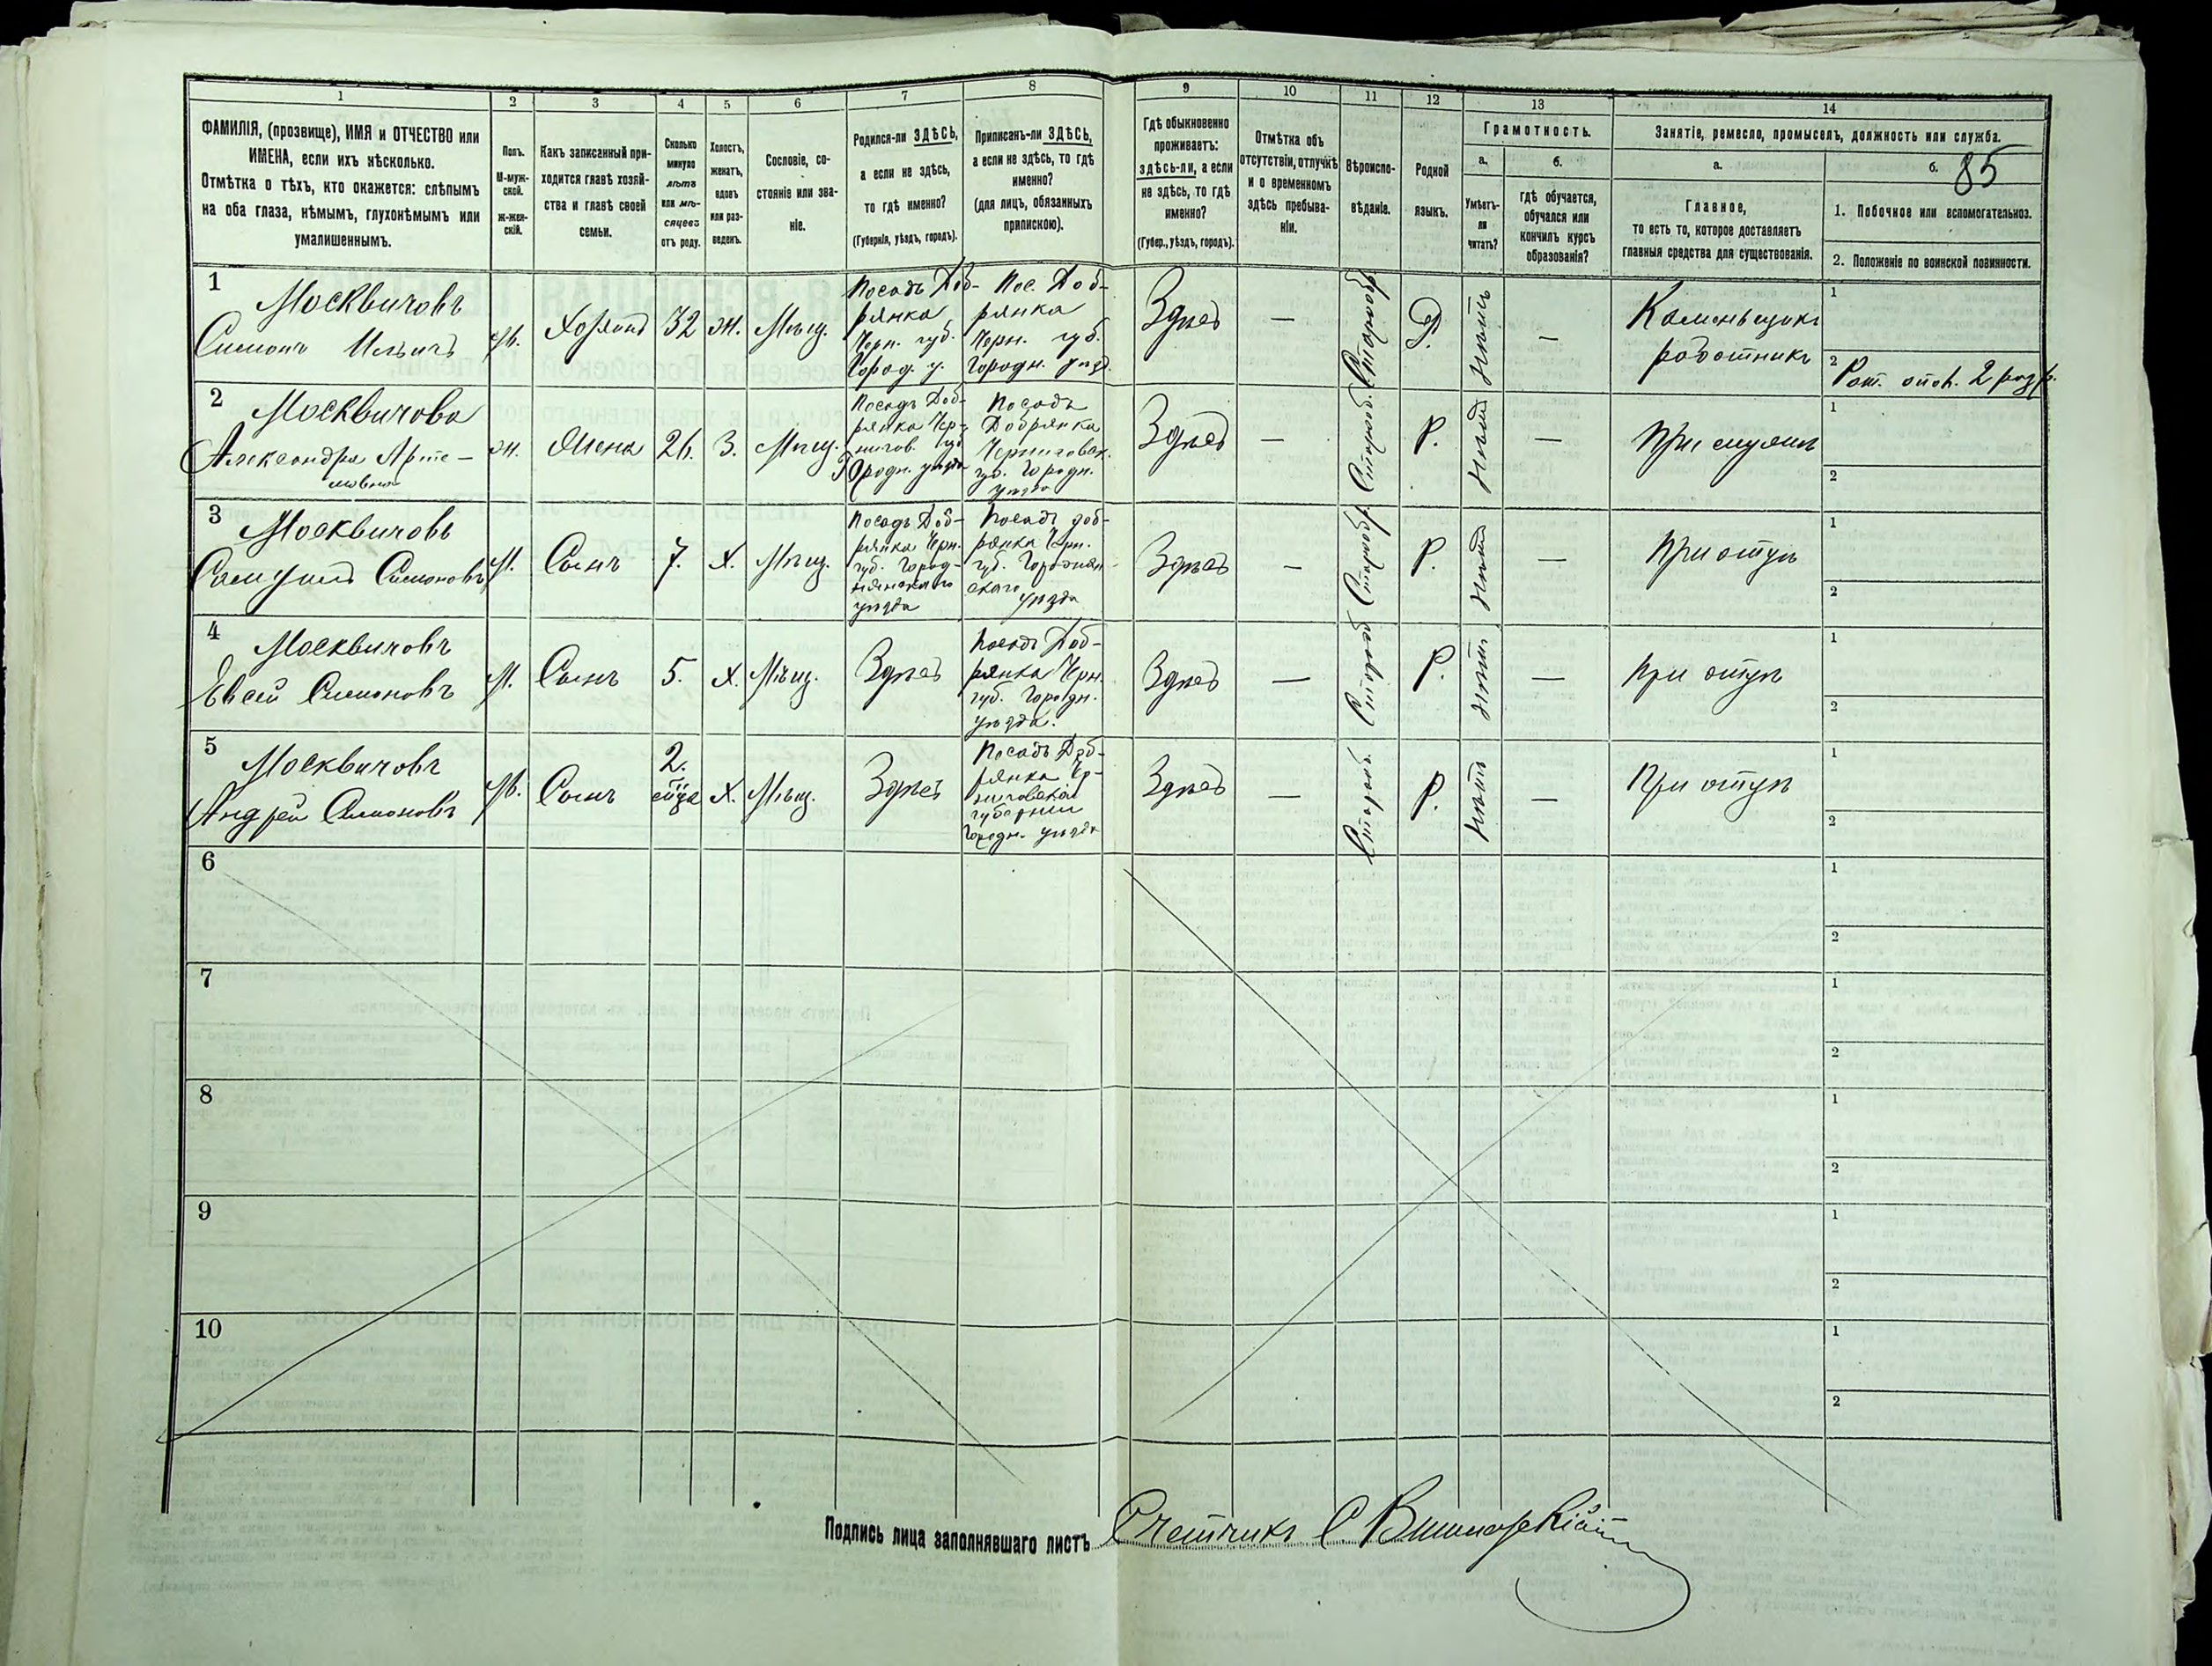 1 2 3 4 5 6 7 8 9 10 11 12 13 14
ФАМИЛІЯ, (прозвище), ИМЯ и ОТЧЕСТВО или
ИМЕНА, если ихъ нѣсколько.
Отмѣтка о тѣхъ, кто окажется: слѣпымъ
на оба глаза, нѣмымъ, глухонѣмымъ или
умалишеннымъ.
Полъ.
М-муж-
ской.
Ж-жен-
скій.
Какъ записанный при-
ходится главѣ хозяй-
ства и главѣ своей
семьи.
Сколько
минуло
лѣтъ
или мѣ-
сяцевъ
отъ роду.
Холостъ,
женатъ,
вдовъ
или раз-
веденъ.
Сословіе, со-
стояніе или зва-
ніе.
Родился-ли ЗДѢСЬ,
а если не здѣсь,
то гдѣ именно?
(Губернія, уѣздъ, городъ).
Приписанъ-ли ЗДѢСЬ,
а если не здѣсь, то гдѣ
именно?
(для лицъ, обязанныхъ
припискою).
Гдѣ обыкновенно
проживаетъ:
здѣсь-ли, а если
не здѣсь, то гдѣ
именно?
(Губер., уѣздъ, городъ).
Отмѣтка объ
отсутствіи, отлучкѣ
и о временномъ
здѣсь пребыва-
ніи.
Вѣроиспо-
вѣданіе.
Родной
языкъ.
Грамотность.
а.
Умѣетъ-
ли
читать?
б.
Гдѣ обучается,
обучался или
кончилъ курсъ
образованія?
Занятіе, ремесло, промыселъ, должность или служба.
а.
Главное,
то есть то, которое доставляетъ
главныя средства для существованія.
б.
85
1. Побочное или вспомогательное.
2. Положеніе по воинской повинности.
1
Москвичовъ
Симонъ Ильичъ
М.
Хозяинъ
32
ж.
Мѣщ.
Посадъ Доб-
рянка
Черн. губ.
Город. у.
Пос. Доб-
рянка
Черн. губ.
Городн. уѣз.
Здѣсь
—
Старообр.
Р.
нѣтъ
—
Каменьщикъ
работникъ
1
2 Рат. опол. 2 разр.
2
Москвичова
Александра Арте-
мовна
ж.
Жена
26.
З.
Мѣщ.
Посадъ Доб-
рянка Чер-
нигов. губ.
Городн. уѣзда
Посадъ
Добрянка
Черниговск.
губ. Городн.
уѣзда
Здѣсь
—
Старооб.
Р.
нѣтъ
—
При мужѣ
1
2
3
Москвичовъ
Самуилъ Симоновъ
М.
Сынъ
7.
Х.
Мѣщ.
Посадъ Доб-
рянка Черн.
губ. Город-
нянскаго
уѣзда
Посадъ доб-
рянка Черн.
губ. Городнян-
скаго
уѣзда
Здѣсь
—
Старообр.
Р.
нѣтъ
—
При отцѣ
1
2
4
Москвичовъ
Евсей Симоновъ
М.
Сынъ
5.
Х.
Мѣщ.
Здѣсь
Посадъ Доб-
рянка Черн.
губ. Городн.
уѣзда.
Здѣсь
—
Старооб
Р.
нѣтъ
—
При отцѣ
1
2
5
Москвичовъ
Андрей Симоновъ
М.
Сынъ
2.
Х.
Мѣщ.
Здѣсь
Посадъ Доб-
рянка Чер-
ниговской
губерніи
Городн. уѣзда
Здѣсь
—
Старооб.
Р.
нѣтъ
—
При отцѣ
1
2
6
1
2
7
1
2
8
1
2
9
1
2
10
1
2
Подпись лица заполнявшаго листъ Счетчикъ С